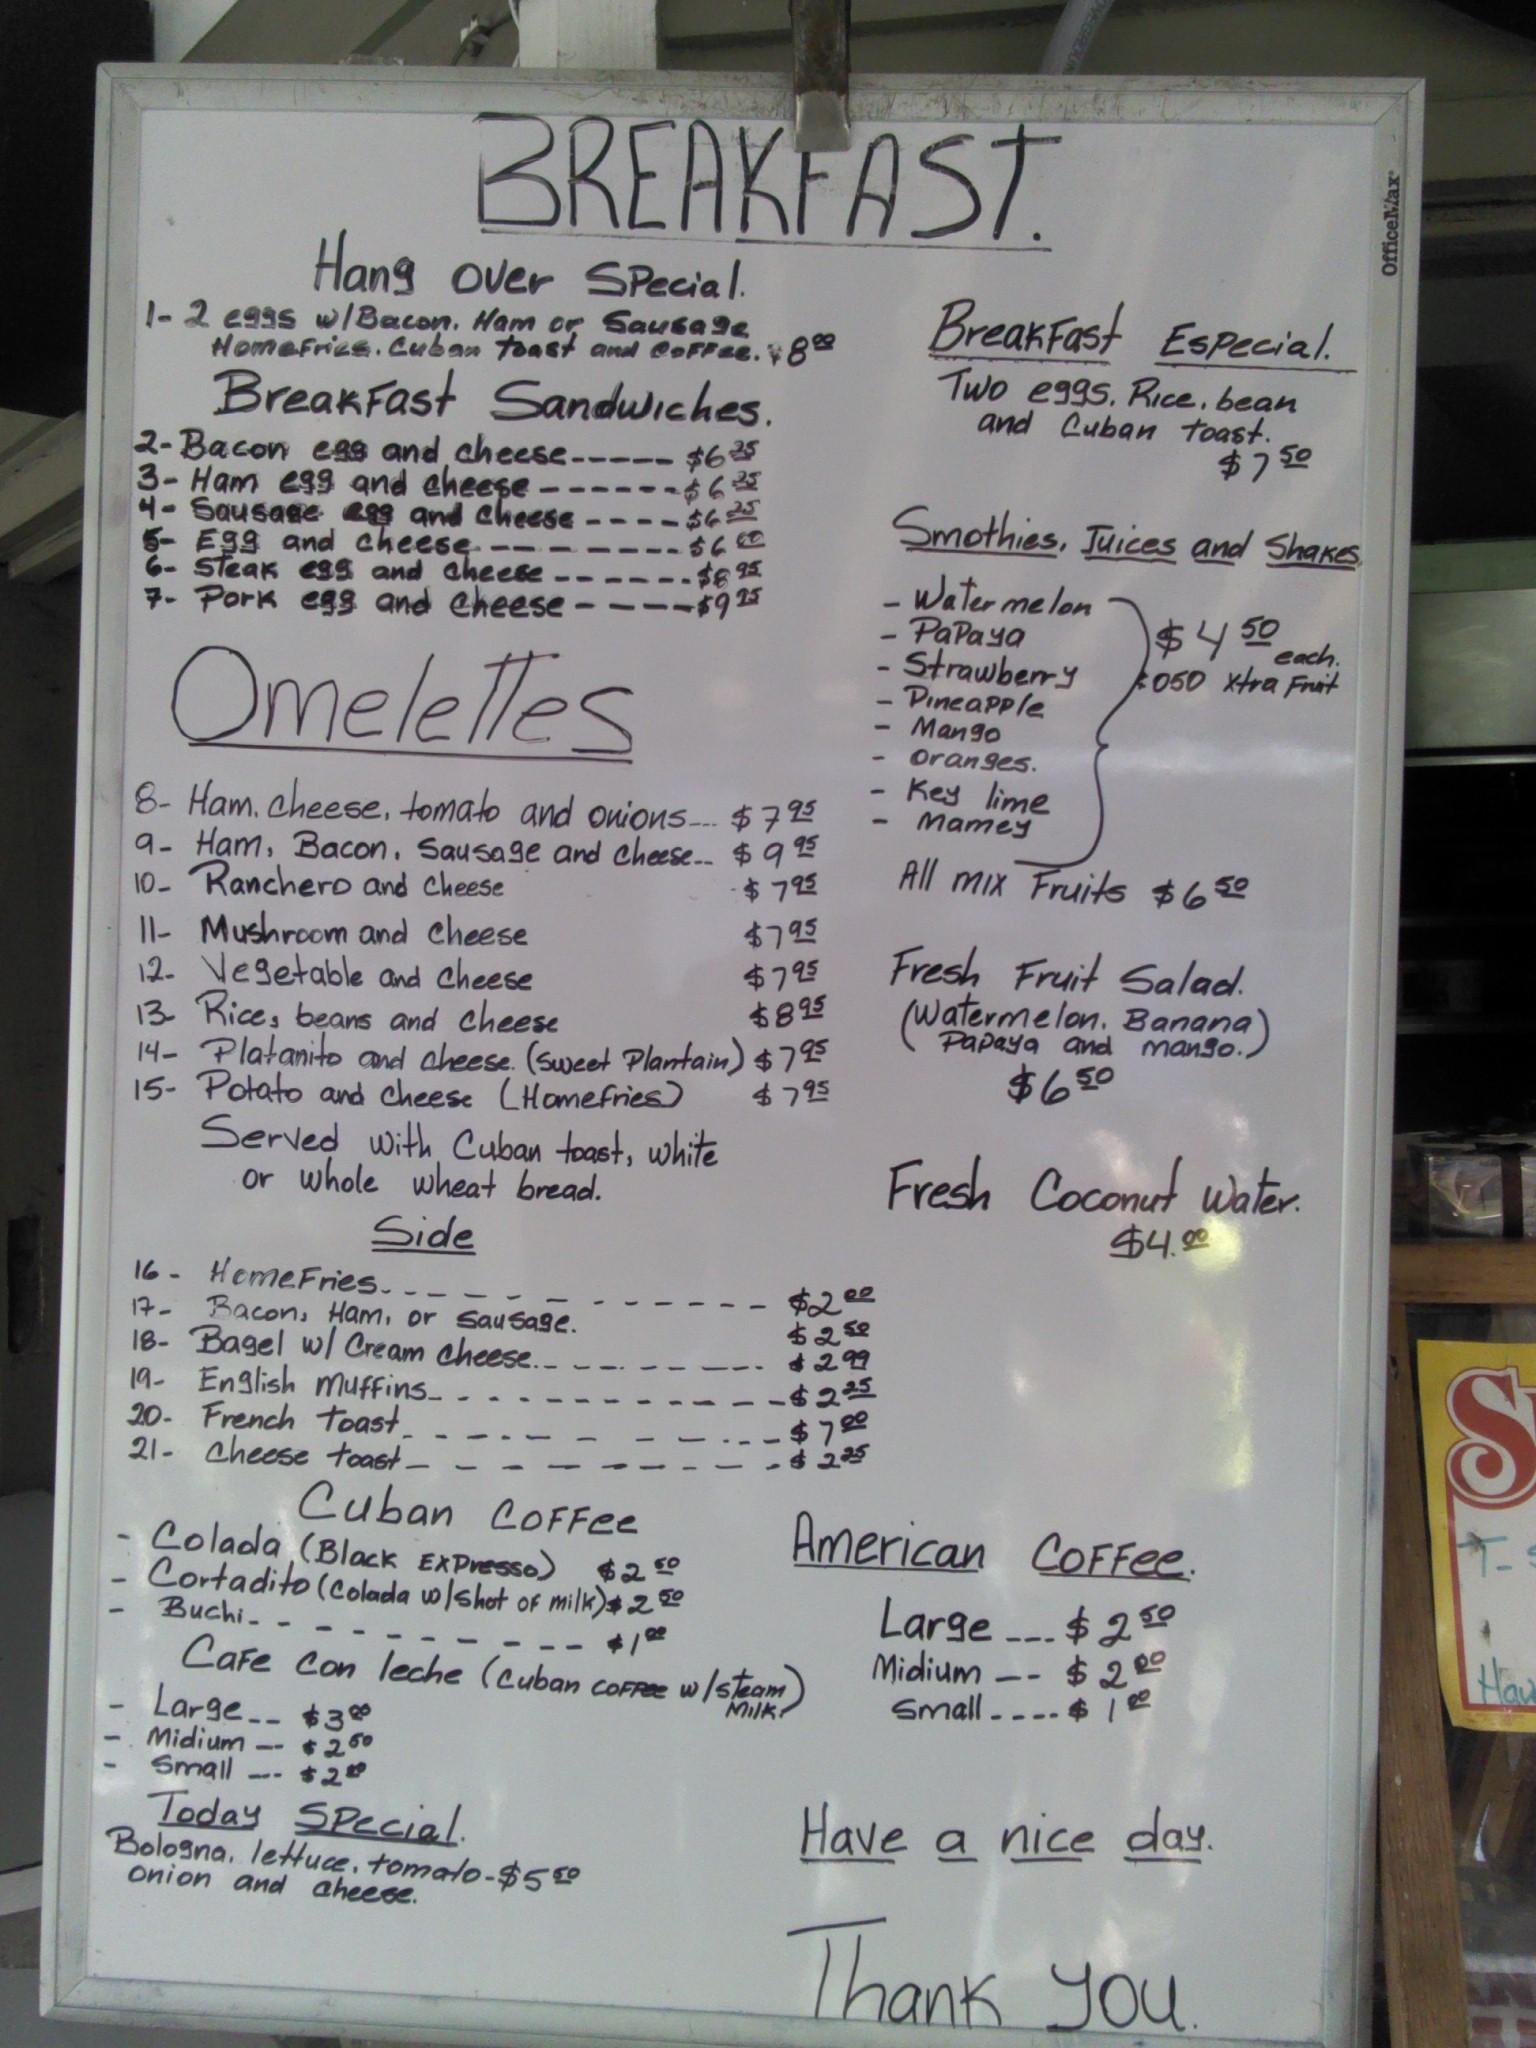 BREAKFAST.
Hang over Special.
1- 2 eggs w/Bacon. Ham or Sausage
HomeFries. Cuban toast and coffee. $8 00
Breakfast Sandwiches.
2- Bacon egg and cheese----- $6 25
3- Ham egg and cheese------ $6 25
4- Sausage egg and cheese---- $6 25
5- Egg and cheese--------- $6 00
6- Steak egg and cheese------ $8 95
7- Pork egg and cheese----- $9 25
Omelettes
8- Ham. cheese, tomato and onions... $7 95
9- Ham, Bacon, Sausage and cheese.. $9 95
10- Ranchero and cheese $7 95
11- Mushroom and cheese $7 95
12- Vegetable and cheese $7 95
13- Rice, beans and cheese $8 95
14- Platanito and cheese. (sweet Plantain) $7 95
15- Potato and cheese (HomeFries) $7 95
Served with Cuban toast, white
or whole wheat bread.
Side
16- HomeFries----------- $2 00
17- Bacon, Ham, or sausage. $2 50
18- Bagel w/ Cream cheese-------- $2 99
19- English Muffins------------ $2 25
20- French toast----------- $7 00
21- Cheese toast---------- $2 25
Cuban Coffee
- Colada (Black Expresso) $2 50
- Cortadito (colada w/shot of milk) $2 50
- Buchi---------- $1 00
Cafe con leche (Cuban coffee w/steam
Milk.)
- Large--- $3 00
- Midium --- $2 50
- Small --- $2 00
Today Special.
Bologna. lettuce. tomato-$5 50
onion and cheese.
OfficeMax
Breakfast Especial.
Two eggs. Rice. bean
and Cuban toast.
$7 50
Smothies, Juices and Shakes
- Watermelon
- Papaya
- Strawberry
- Pineapple
- Mango
- oranges.
- Key lime
- Mamey
$4 50
each.
050 Xtra Fruit
All mix Fruits $6 50
Fresh Fruit Salad.
(Watermelon. Banana)
(Papaya and mango.)
$6 50
Fresh Coconut Water.
$4.00
American Coffee.
Large ---- $2 50
Midium --- $2 00
Small ---- $1 00
Have a nice day.
Thank you.